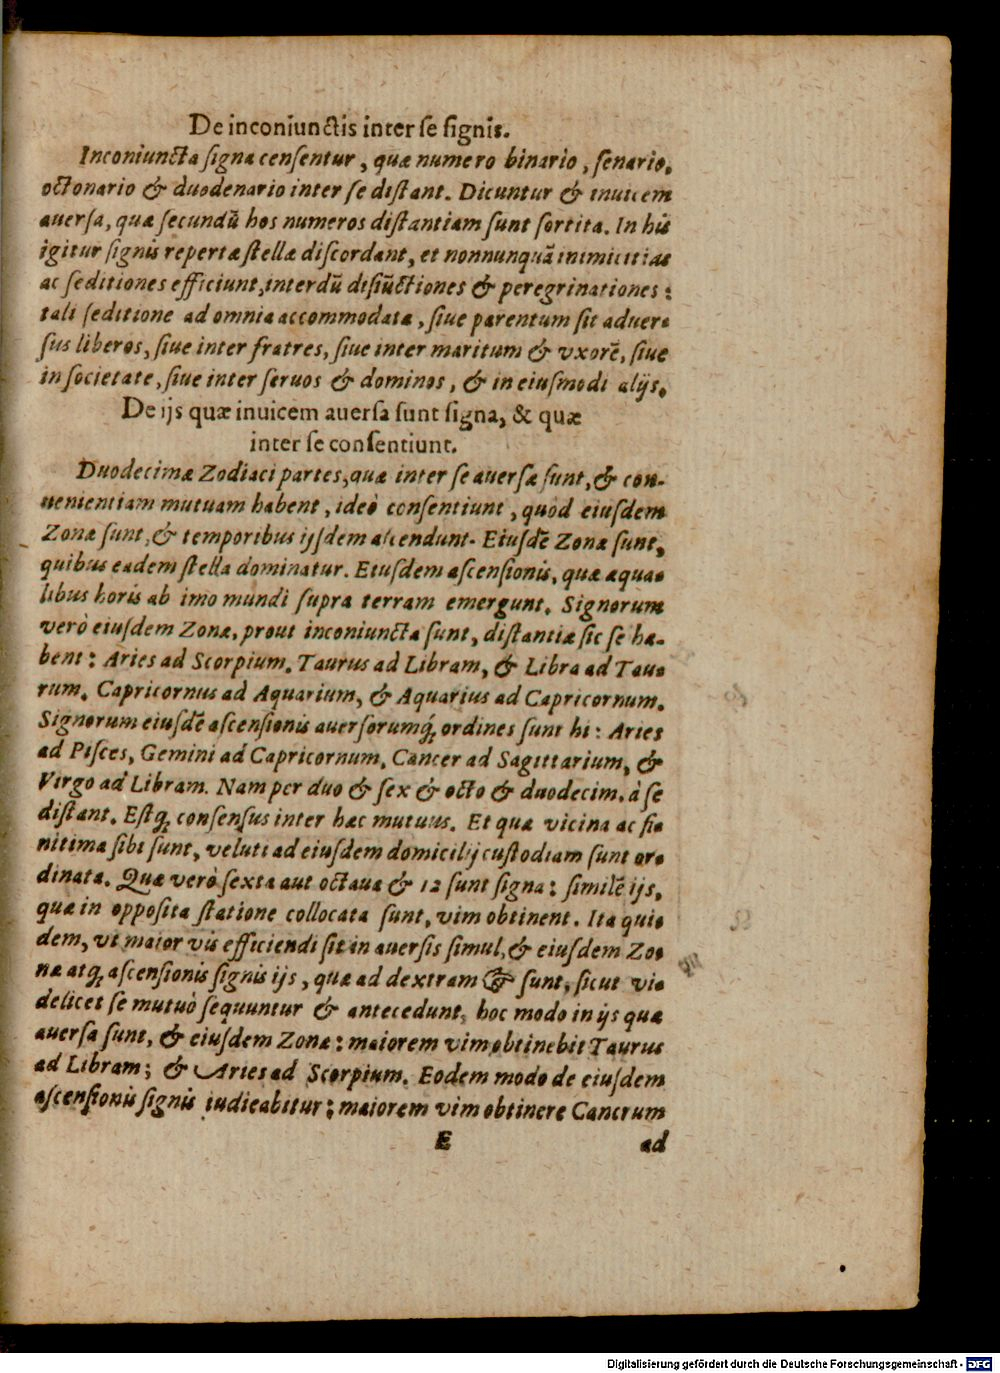 De inconiunctis inter se signis.
Inconiuncta signa censentur, quæ numero binario, senario,
octonario & duodenario inter se distant. Dicuntur & inuicem
auersa, quæ secundũ hos numeros distantiam sunt sortita. In his
igitur signis repertæ stellæ discordant, et nonnunquã inimicitias
ac seditiones efficiunt, interdũ disiũctiones & peregrinationes:
tali seditione ad omnia accommodata, siue parentum sit aduer-
sus liberos, siue inter fratres, siue inter maritum & vxorẽ, siue
in societate, siue inter seruos & dominos, & in eiusmodi alijs.
De ijs quæ inuicem auersa sunt signa, & quæ
inter se consentiunt.
Duodecimæ Zodiaci partes, quæ inter se auersæ sunt, & con-
uenientiam mutuam habent, ideò consentiunt, quòd eiusdem
Zonæ sunt, & temporibus ijsdem ascendunt. Eiusdẽ Zonæ sunt,
quibus eadem stella dominatur. Eiusdem ascensionis, quæ æqua-
libus horis ab imo mundi supra terram emergunt. Signorum
verò eiusdem Zonæ, prout inconiuncta sunt, distantiæ sic se ha-
bent: Aries ad Scorpium. Taurus ad Libram, & Libra ad Tau-
rum. Capricornus ad Aquarium, & Aquarius ad Capricornum.
Signorum eiusdẽ ascensionis auersorumq́; ordines sunt hi: Aries
ad Pisces, Gemini ad Capricornum, Cancer ad Sagittarium, &
Virgo ad Libram. Nam per duo & sex & octo & duodecim. à se
distant. Estq́; consensus inter hæc mutuus. Et quæ vicina ac fi-
nitima sibi sunt, veluti ad eiusdem domicilij custodiam sunt or-
dinata. Quæ verò sexta aut octaua & 12 sunt signa: similẽ ijs,
quæ in opposita statione collocata sunt, vim obtinent. Ita qui-
dem, vt maior vis efficiendi sit in auersis simul, & eiusdem Zo-
næ atq́; ascensionis signis ijs, quæ ad dextram sunt, sicut vi-
delicet se mutuò sequuntur & antecedunt, hoc modo in ijs quæ
auersa sunt, & eiusdem Zonæ: maiorem vim obtinebit Taurus
ad Libram; & Aries ad Scorpium. Eodem modo de eiusdem
ascensionis signis iudicabitur: maiorem vim obtinere Cancrum
E ad
Digitalisierung gefördert durch die Deutsche Forschungsgemeinschaft - DFG